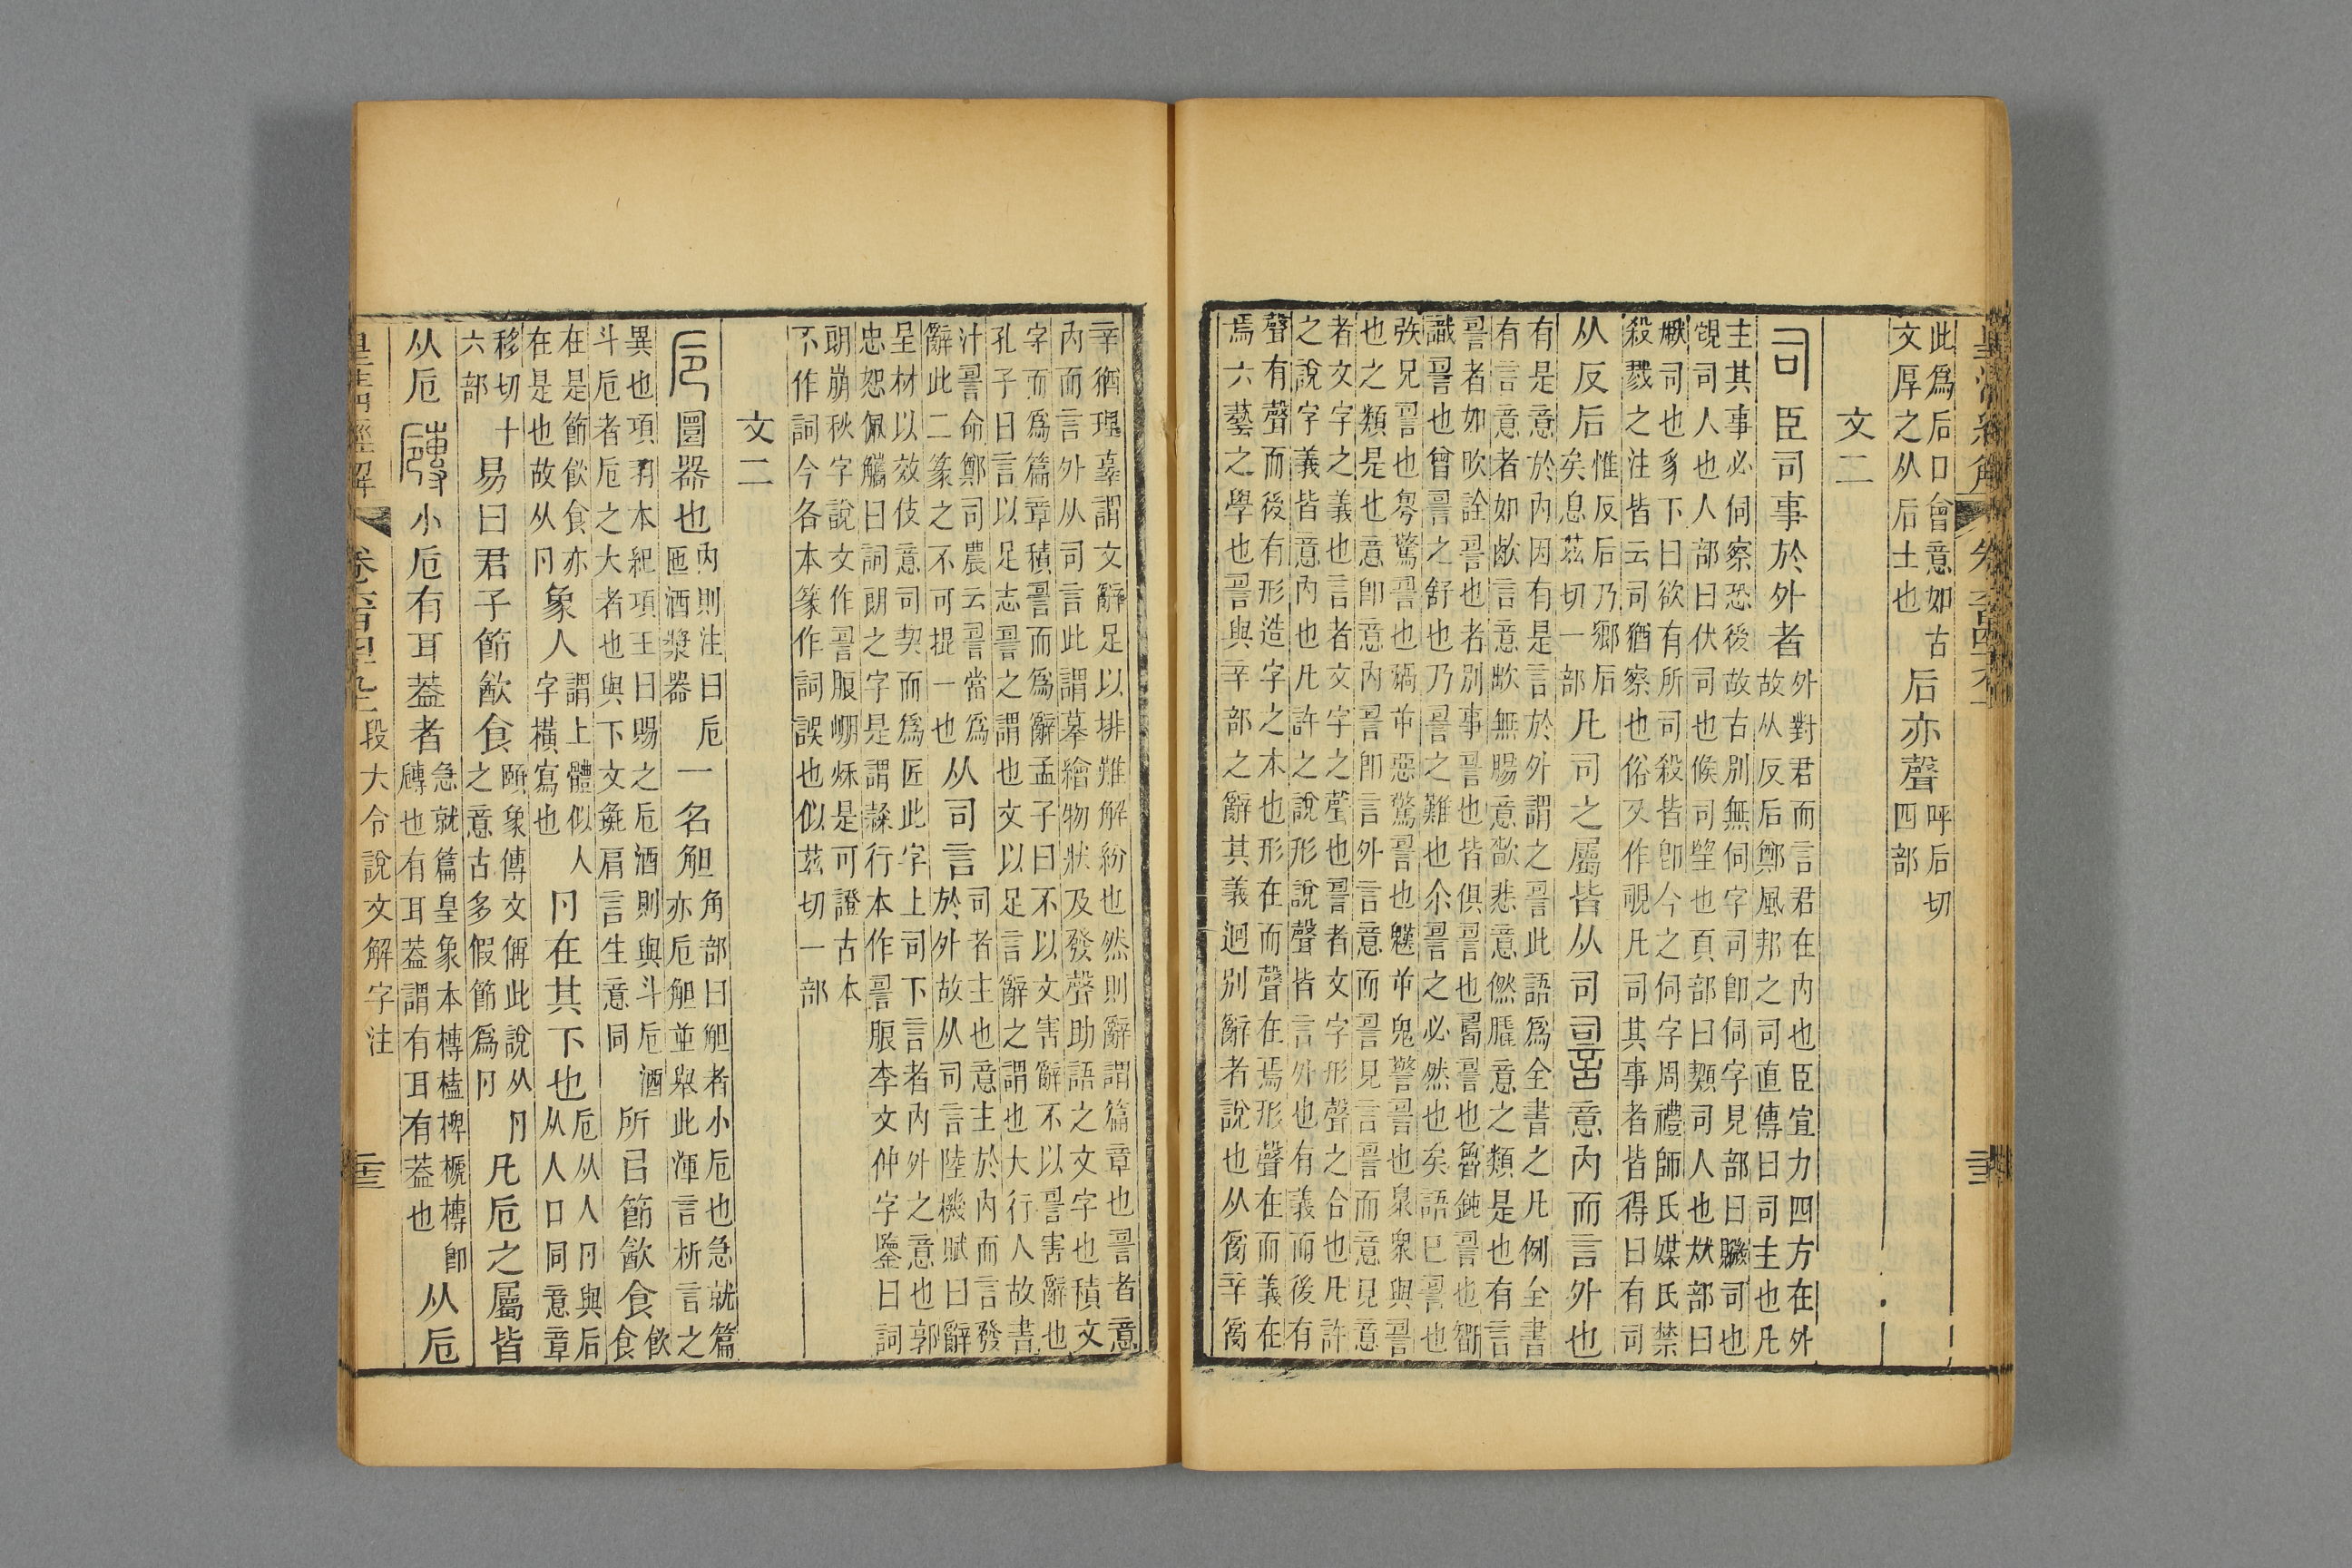 此爲后口會意如古文厚之从后土也后亦聲呼后切四部
文二
司臣司事於外者外對君而言君在內也臣宣力四方在外故从反后鄭風邦之司直傳曰司主也凡
主其事必伺察恐後故古別無伺字司卽伺字見部曰司也覗司人也人部曰伏司也候司望也頁部曰司人也㹜部曰
㺇司也豸下曰欲有所司殺皆卽今之伺字周禮師氏媒氏禁殺戮之注皆云司猶察也俗又作覗凡司其事者皆得曰有司
从反后惟反后乃鄉后矣息茲切一部凡司之屬皆从司䛐意內而言外也
有是意於內因有是言於外謂之䛐此語爲全書之凡例全書有言意者如欪言意欿無腸意歗悲意意之類是也有言
䛐者如欥詮䛐也者別事䛐也皆俱䛐也䛐也魯鈍䛐也𥏼
識䛐也曾䛐之舒也乃䛐之難也尒䛐之必然也矣語已䛐也
矤兄䛐也䛐驚䛐也屰惡驚䛐也屰鬼驚䛐也臮衆與䛐也之類是也意卽意內䛐卽言外言意而䛐見言䛐而意見意
者文字之義也言者文字之聲也䛐者文字形聲之合也凡許之說字義皆意內也凡許之說形說聲皆言外也有義而後有
聲有聲而後有形造字之本也形在而聲在焉形聲在而義在焉六藝之學也䛐與辛部之辭其義迥別辭者說也从𤔔辛𤔔
辛猶理辜謂文辭足以排難解紛也然則辭謂篇章也䛐者意內而言外从司言此謂摹繪物狀及發聲助語之文字也積文
字而爲篇章積䛐而爲辭孟子曰不以文害辭不以䛐害辭也孔子曰言以足志䛐之謂也文以足言辭之謂也大行人故書
汁䛐命鄭司農云䛐當爲辭此二篆之不可掍一也从司言司者主也意主於內而言發於外故从司言陸機賦曰辭
呈材以效伎意司契而爲匠此字上司下言者內外之意也郭忠恕佩觿曰詞朗之字是謂隸行本作䛐朖李文仲字鑒曰詞
朗崩秋字說文作䛐朖𡹔秌是可證古本不作詞今各本篆作詞誤也似茲切一部
文二
卮圜器也內則注曰卮匜酒漿器一名觛角部曰觛者小卮也急就篇亦卮觛並舉此渾言析言之
異也項羽本紀項王曰賜之卮酒則與斗卮酒斗卮者卮之大者也與下文彘肩言生意同所㠯節㱃食飮食
在是節飮食亦在是也故从卪象人謂上體似人字橫寫也卪在其下也卮从人卪與后从人口同意章
移切十六部易曰君子節㱃食頤象傳文偁此說从卪之意古多假節爲卪凡卮之屬皆
从卮𤮺小卮有耳蓋者急就篇皇象本槫榼椑榹槫卽𤮺也有耳蓋謂有耳有蓋也从卮
皇淸經解 卷六百四十九上 段大令說文解字注